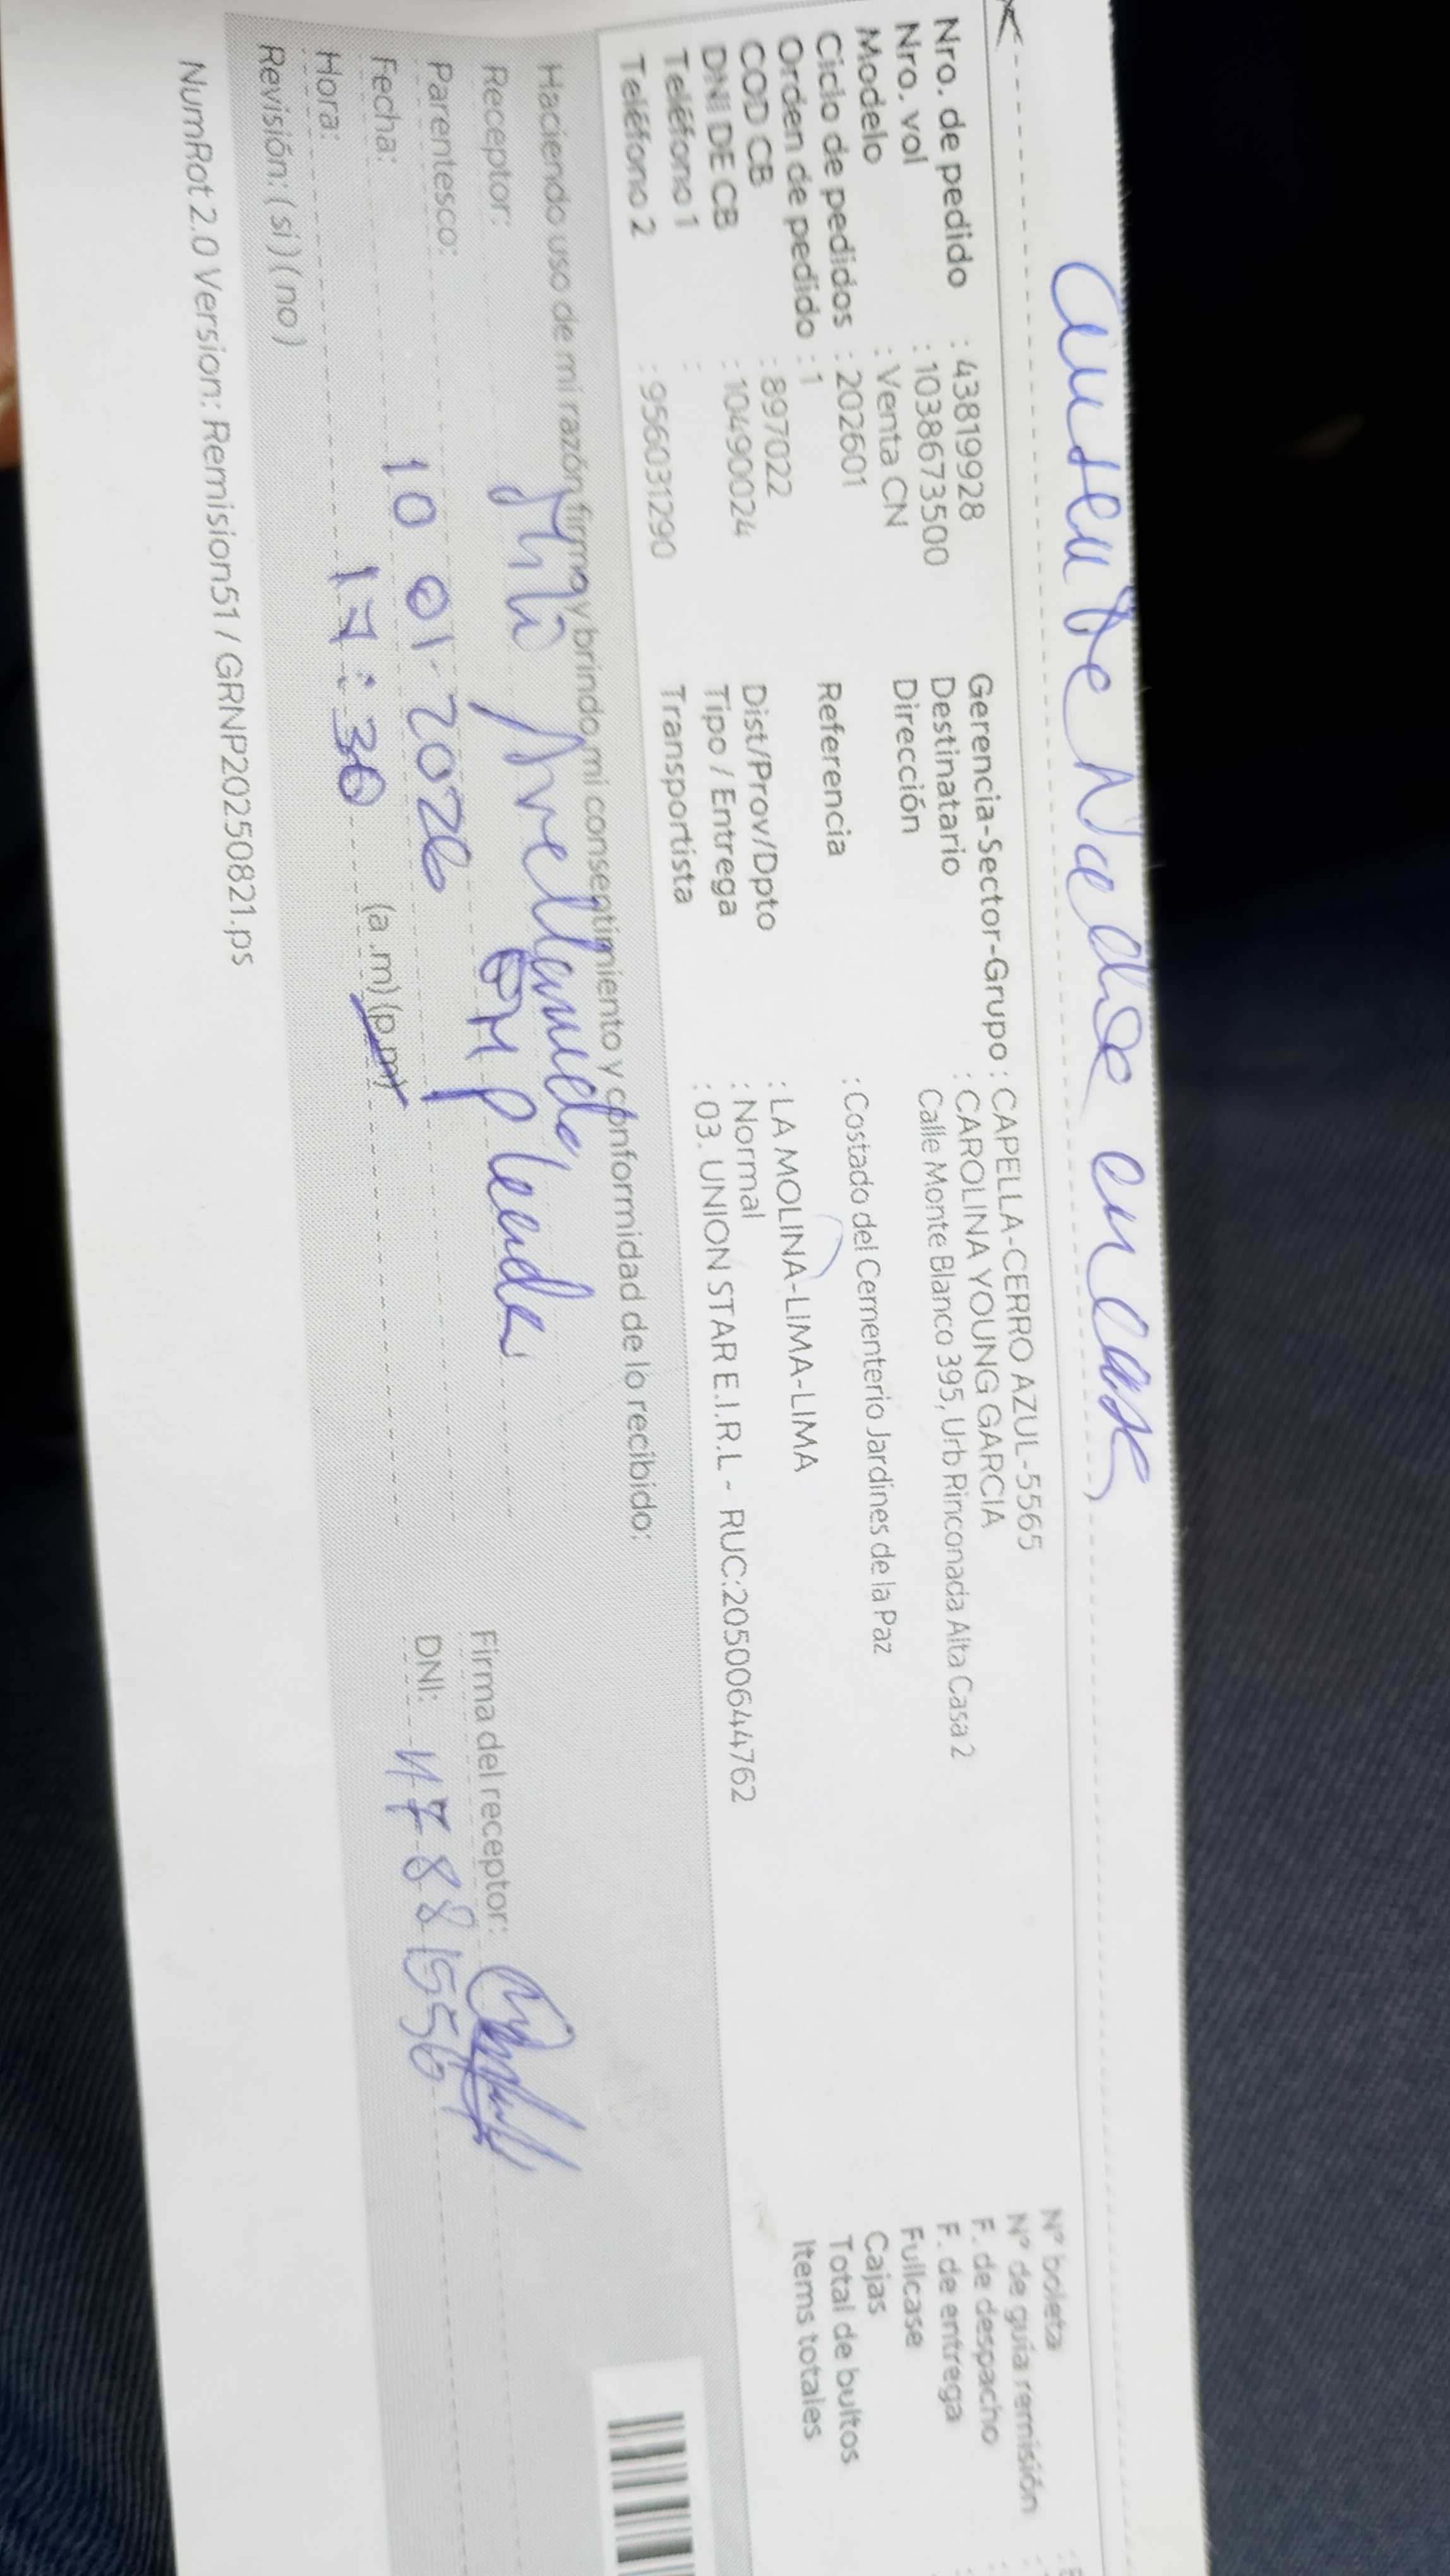 ausente Nadie en casa
Nro. de pedido : 43819928
Nro. vol : 1038673500
Modelo : Venta CN
Ciclo de pedidos : 202601
Orden de pedido : 1
COD CB : 897022
DNI DE CB : 10490024
Teléfono 1 :
Teléfono 2 : 956031290
Gerencia-Sector-Grupo : CAPELLA-CERRO AZUL-5565
Destinatario : CAROLINA YOUNG GARCIA
Dirección Calle Monte Blanco 395, Urb Rinconada Alta Casa 2
Referencia : Costado del Cementerio Jardines de la Paz
Dist/Prov/Dpto : LA MOLINA-LIMA-LIMA
Tipo / Entrega : Normal
Transportista : 03. UNION STAR E.I.R.L - RUC:20500644762
N° boleta
N° de guía remisión
F. de despacho
F. de entrega
Fullcase
Cajas
Total de bultos
Items totales
Haciendo uso de mi razón firmo y brindo mi consentimiento y conformidad de lo recibido:
Receptor: Avellaneda
Parentesco:
Fecha: 10 01-2026
Hora: 17:30 (a.m) (p.m)
Revisión: ( si ) ( no )
Firma del receptor:
DNI: 47881556
NumRot 2.0 Version: Remision51 / GRNP20250821.ps